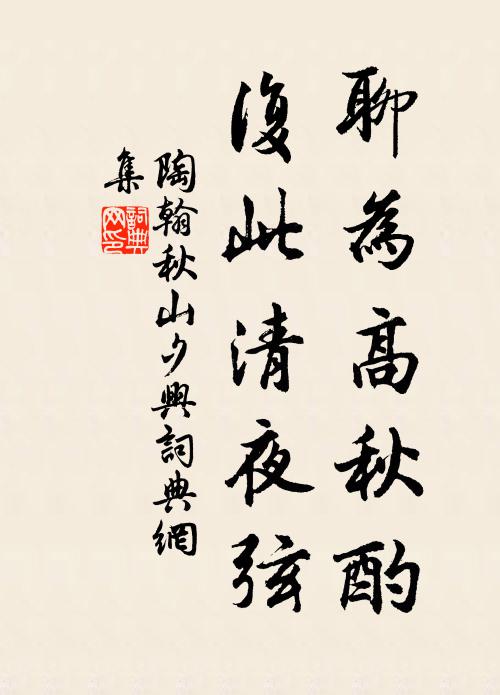 聊為高秋酌
復此清夜弦
陶翰秋山夕興詞典網
集
詞典
网印